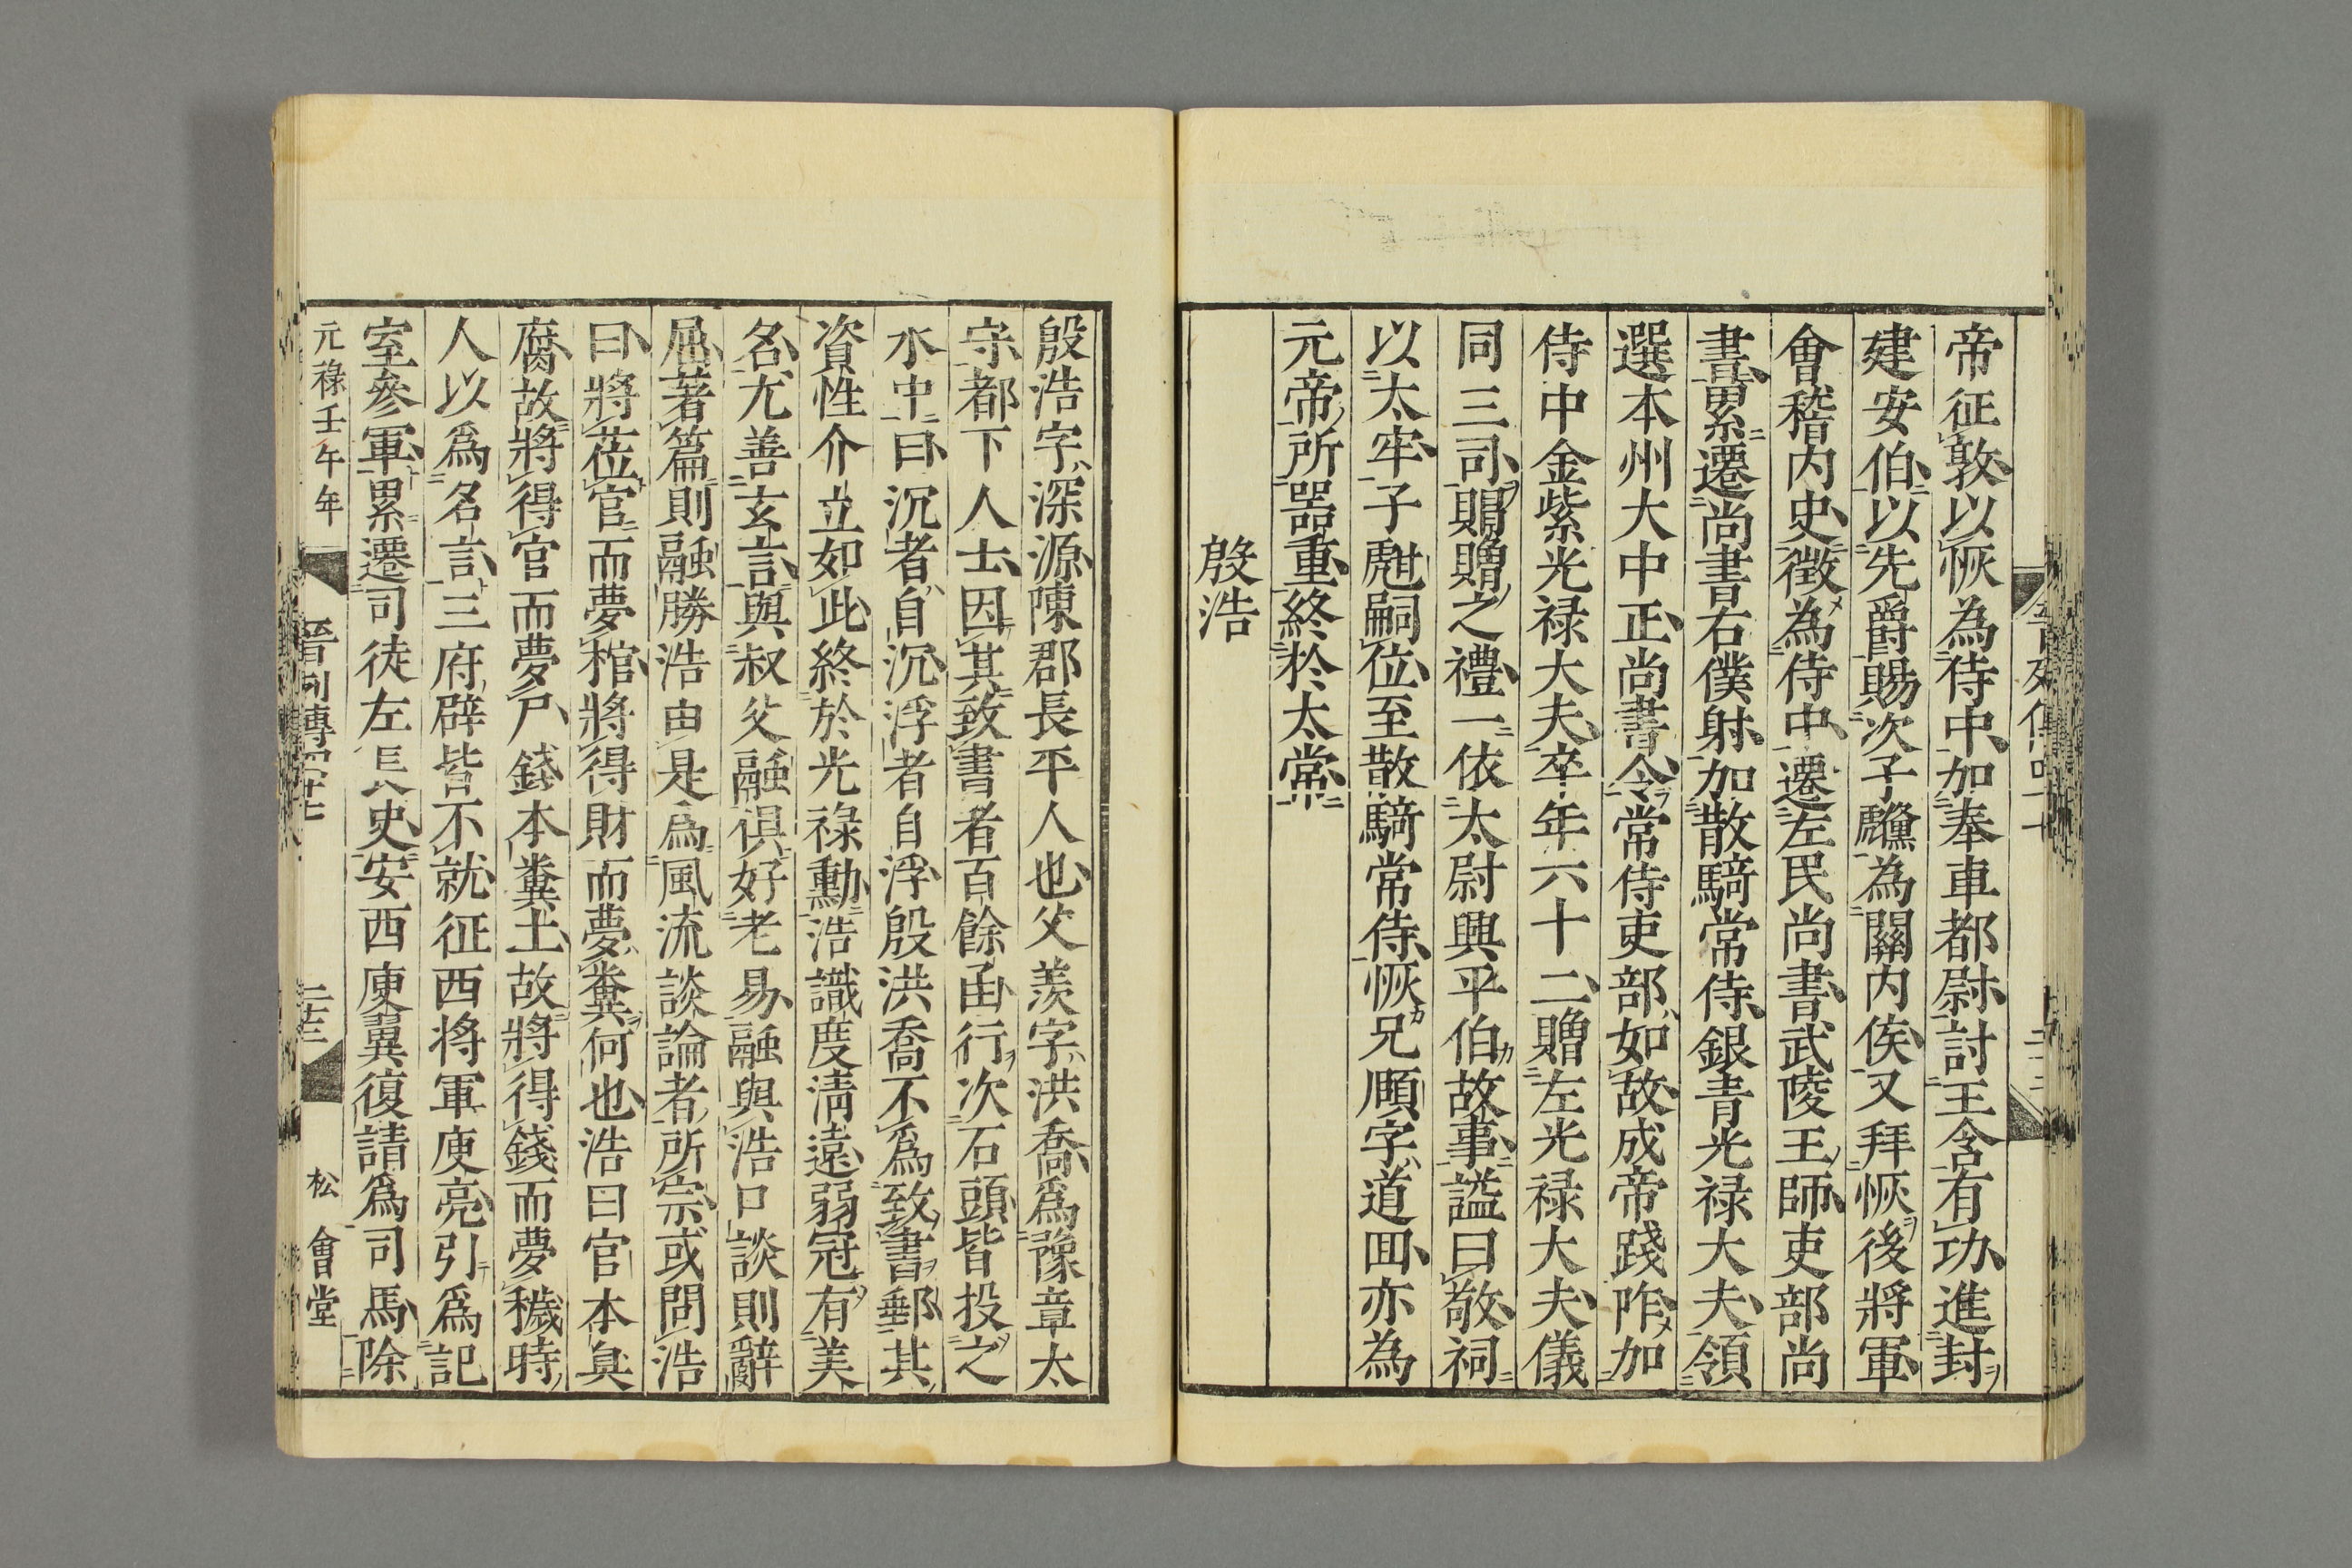 帝征敦以恢為侍中加奉車都尉討王含有功進封
建安伯以先爵賜次子𪋤為關内侯又拜恢後將軍
會稽内史徵為侍中遷左民尚書武陵王師吏部尚
書累遷尚書右僕射加散騎常侍銀青光禄大夫領
選本州大中正尚書令常侍吏部如故成帝踐阼加
侍中金紫光禄大夫卒年六十二贈左光禄大夫儀
同三司賵贈之禮一依太尉興平伯故事謚曰敬祠
以太牢子嗣位至散騎常侍恢兄頤字道回亦為
元帝所器重終於太常
殷浩
殷浩字深源陳郡長平人也父羨字洪喬爲豫章太
守都下人士因其致書者百餘函行次石頭皆投之
水中曰沉者自沉浮者自浮殷洪喬不爲致書郵其
資性介立如此終於光祿勳浩識度淸遠弱冠有美
名尤善玄言與叔父融俱好老易融與浩口談則辭
屈著篇則融勝浩由是爲風流談論者所宗或問浩
曰將莅官而夢棺將得財而夢糞何也浩曰官本臭
腐故將得官而夢尸錢本糞土故將得錢而夢穢時
人以爲名言三府辟皆不就征西将軍庾亮引爲記
室參軍累遷司徒左長史安西庾翼復請爲司馬除
元祿壬午年 晉列傳四十七 二十三 松會堂